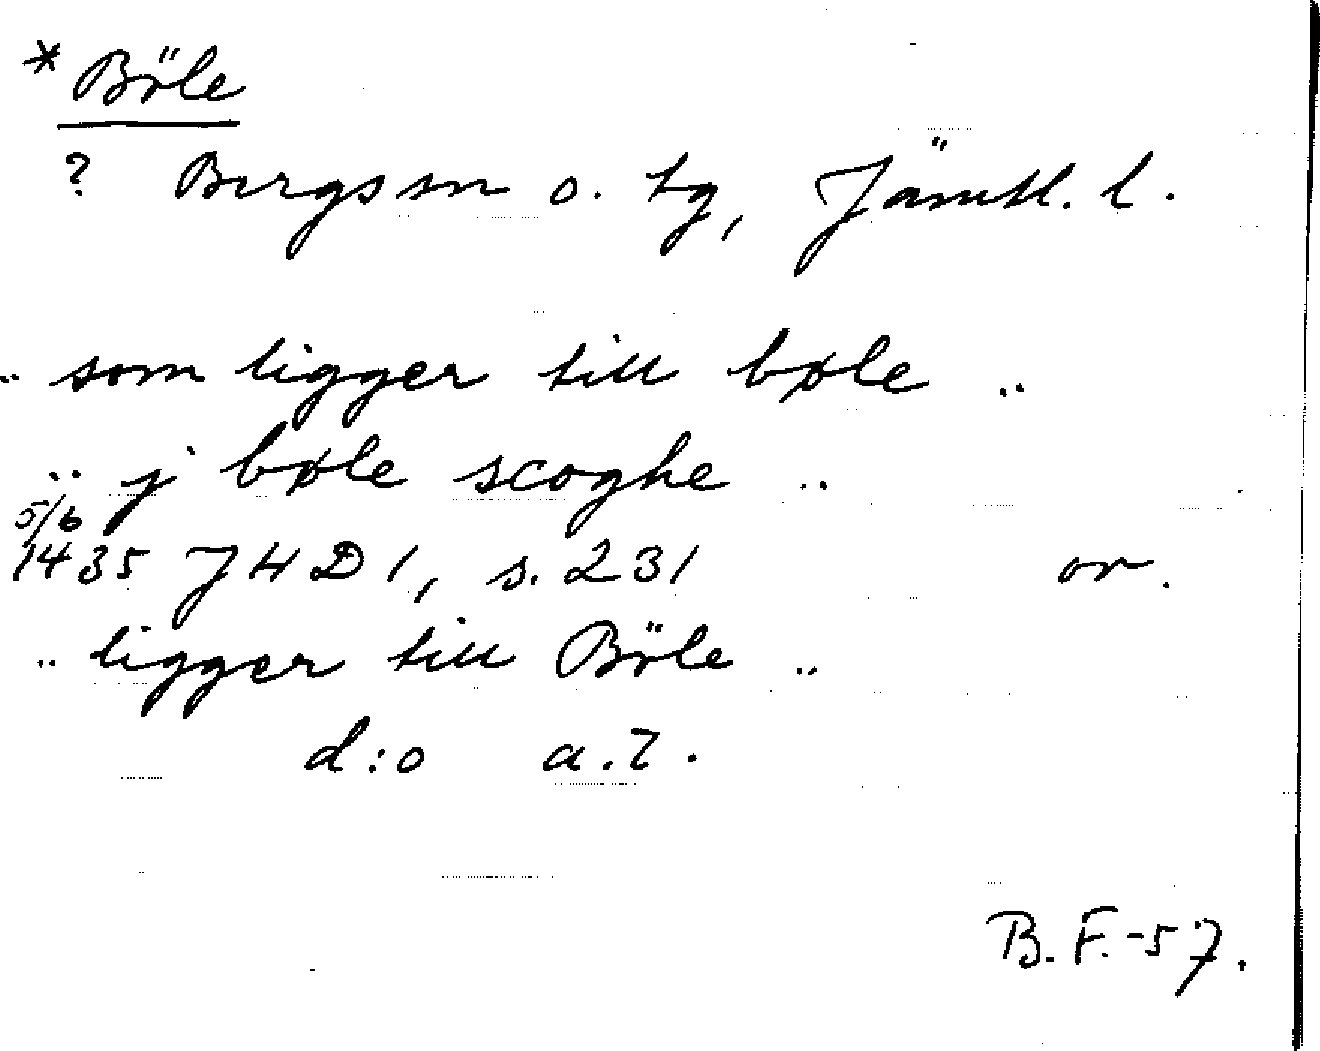 * Böle
? Bergs sn o. tg, Jämtl. l.
.. som ligger till bøle ..
.. j bøle scoghe ..
5/6
1435 JHD 1, s. 231 or.
.. ligger till Böle ..
d:o a.7.
B.F.-57.